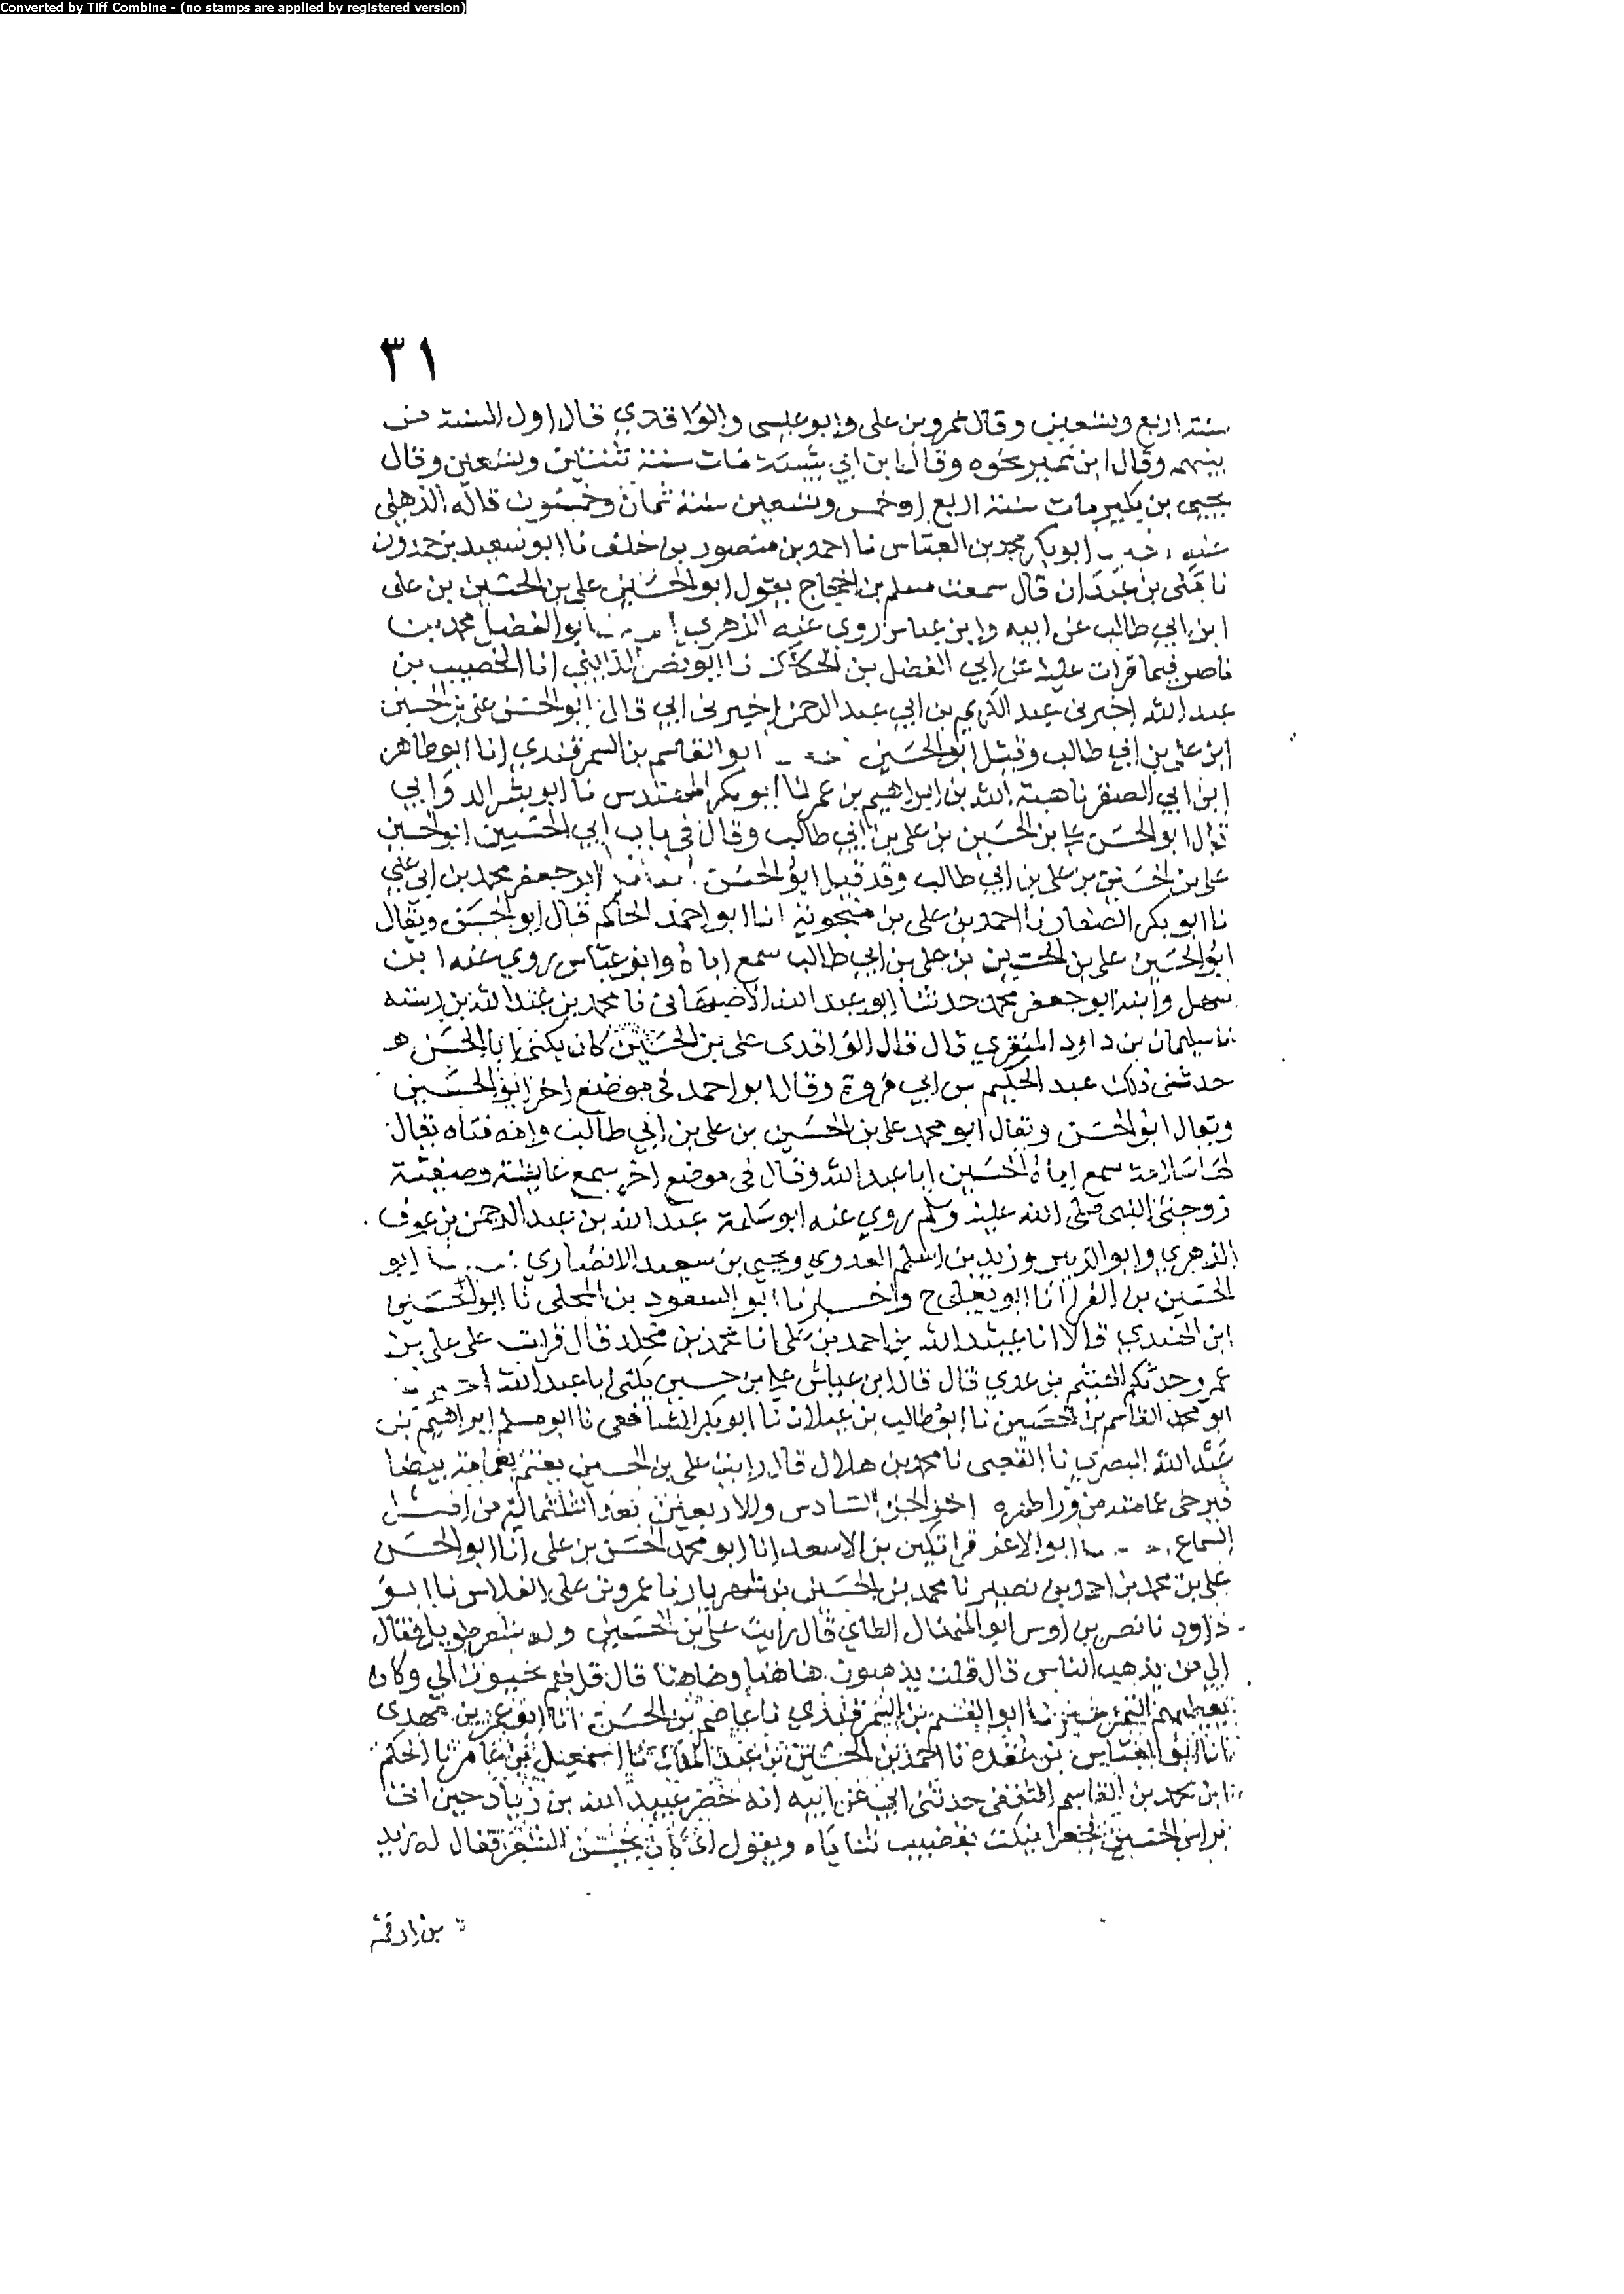 Converted by Tiff Combine - (no stamps are applied by registered version)
٣١
سنة اربع وتسعين وقال عمرو بن على وابو عيسى والواقدي قال اول السنة من
بينهم وقال ابن نمير نحوه وقال ابن ابي شيبة مات سنة ثنتين وتسعين وقال
يحيى بن بكير مات سنة اربع او خمس وتسعين سنة ثمان وخمسون قاله الذهلي
ابو بكر محمد بن العباس نا احمد بن منصور بن خلف نا ابو سعيد بن حمدون
نا مكى بن عبدان قال سمعت مسلم بن الحجاج يقول ابو الحسين على بن الحسين بن على
ابن ابي طالب عن ابيه وابن عباس روى عنه الزهري ابو الفضل محمد بن
ناصر فيما قرات عليه عن ابي الفضل بن الحكاك نا ابو نصر الوايلي انا الخصيب بن
عبد الله اخبرنى عبد الكريم بن ابي عبد الرحمن اخبرنى ابي قال ابو الحسن على بن الحسين
ابن على بن ابي طالب وقيل ابو الحسين ابو القاسم بن السمرقندي انا ابو طاهر
ابن ابي الصقر نا هبة الله بن ابراهيم بن عمر نا ابو بكر المهندس نا ابو بشر الدولابي
قال ابو الحسن على بن الحسين بن على بن ابي طالب وقال فى باب ابي الحسين ابو الحسين
على بن الحسين بن على بن ابي طالب وقد قيل ابو الحسن ابو جعفر محمد بن ابي على
نا ابو بكر الصفار نا احمد بن على بن منجويه انا ابو احمد الحاكم قال ابو الحسن ويقال
ابو الحسين على بن الحسين بن على بن ابي طالب سمع اباه وابن عباس روي عنه ابن
سهل وابنه ابو جعفر محمد حدثنا ابو عبد الله الاصبهانى نا محمد بن عبد الله بن رسته
نا سليمان بن داود المنقري قال قال الواقدى على بن الحسين كان يكنى ابا الحسن هـ
حدثنى ذلك عبد الحكيم بن ابي فروة وقال ابو احمد فى موضع اخر ابو الحسين
ويقال ابو الحسن ويقال ابو محمد على بن الحسين بن على بن ابي طالب وامه فتاه يقال
لها سلامة سمع اباه الحسين ابا عبد الله وقال فى موضع اخر سمع عايشة وصفية
زوجتى النبى صلى الله عليه وسلم روي عنه ابو سلمة عبد الله بن عبد الرحمن بن عوف
الزهري وابو الزبير وزيد بن اسلم العدوي ويحيى بن سعيد الانصاري ابو
الحسين بن الفرا انا ابو يعلى ح واخبرنا ابو السعود بن المجلى نا ابو الحسين
ابن المهتدي قالا انا عبيد الله بن احمد بن على انا محمد بن مخلد قال قرات على على بن
عمرو حدثكم الهيثم بن عدي قال قال ابن عياش على بن حسين يكنى ابا عبد الله
ابو محمد القاسم بن الحصين نا ابو طالب بن غيلان نا ابو بكر الشافعى نا ابو مسلم ابراهيم بن
عبد الله البصري نا القعنبى نا محمد بن هلال قال رايت على بن الحسين يعتم بعمامة بيضا
فيرخى عمامته من ورا ظهره اخر الجزء السادس والاربعين بعد الثلثمائة من
السماع ابو الاعز قراتكين بن الاسعد انا ابو محمد الحسن بن على انا ابو الحسن
على بن محمد بن احمد بن نصير نا محمد بن الحسين بن شهريار نا عمرو بن على الفلاس نا ابو
داود نا نصر بن اوس ابو المنهال الطاي قال رايت على بن الحسين وله شعر طويل فقال
الى من يذهب الناس قال قلت يذهبون هاهنا وهاهنا قال قل لهم يجيون الي وكان
يعطيهم التمر ابو القسم بن السمرقندي نا عاصم بن الحسن انا ابو عمر بن مهدى
انا ابو العباس بن عقده نا احمد بن الحسين بن عبد الملك نا اسمعيل بن عامر نا الحكم
ابن محمد بن القاسم الثقفى حدثنى ابي عن ابيه انه حضر عبيد الله بن زياد حين اتى
براس الحسين فجعل ينكت بقضيب ثناياه ويقول ان كان لحسن الثغر فقال له زيد
بن ارقم